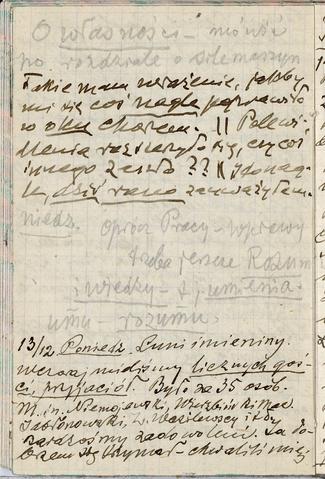 O własności – mówić
po rozdziale o
Takie mam wrażenie, jakby
mi się coś nagle poprawiło
w oku chorem. || Pole wi-
dzenia rozszerzyło się, czy coś
innego zaszło?? ||
dziś rano zauważyłem.
niedz. Oprócz Pracy – wprawy
trzeba jeszcze Rozum
i wiedzy – t. j. umienia.
rozumu.
13/12 Poniedz. Luni imieniny.
Wczoraj mieliśmy licznych goś-
ci, przyjaciół. Było ze 35 osób.
M. in. Niemojewski, Wierzbiński
Jabłonowski, Wasilewscy itd
zazdrosny zadowolnić. Za to
chwalili